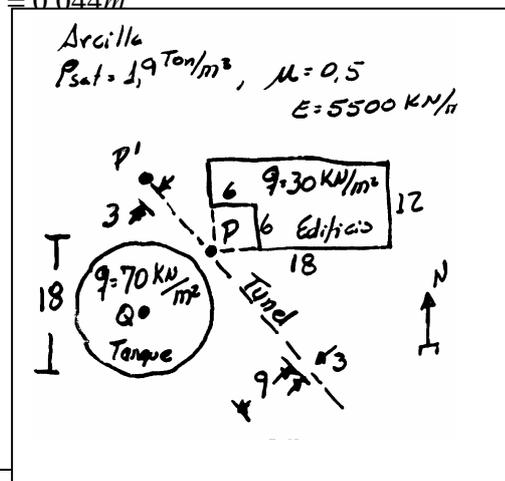 = 0.044m
Arcilla
Psat = 1,9 Ton/m³, μ = 0,5
E = 5500 KN/
P'
3
6
q=30 KN/m²
12
P
6
Edificio
18
T
18
q=70 KN/m²
Q
Tanque
Tunel
N
9
3